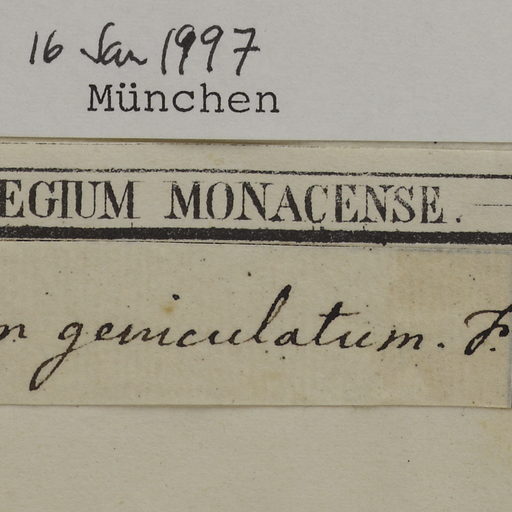 16 Jan 1997
München
EGIUM MONACENSE.
n geniculatum. F.